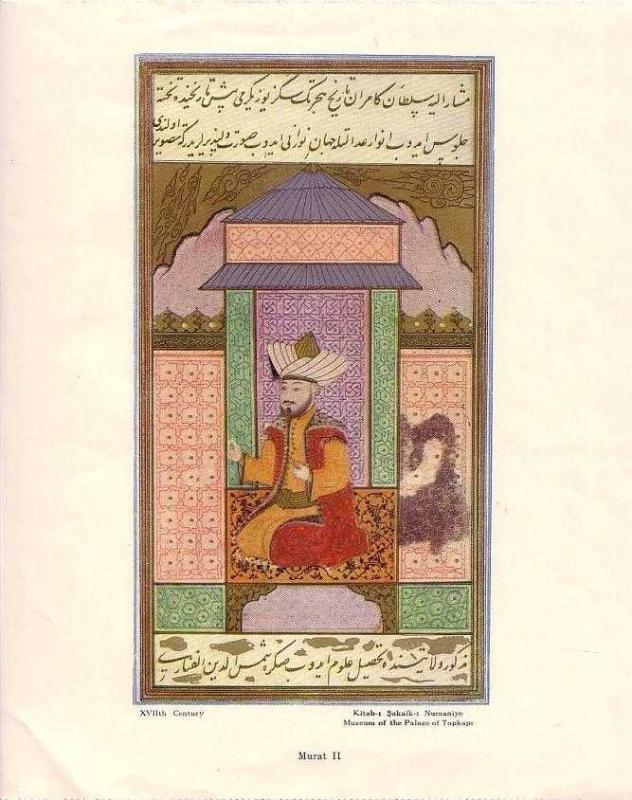 مشار اليه سلطان كامران تاريخ هجرتك سكز يوز يكرمى بش تاريخنده تخته
جلوس ايدوب انوار عدالتله جهان نورانى ايدوب صورت دلپذيرلريدركه تصوير اولندى
مذكور ولايتنده تحصيل علوم ايدوب صكره شمس الدين الفنارى
XVIIth Century
Kitab-ı Şakaik-ı Numaniye
Museum of the Palace of Topkapı
Murat II